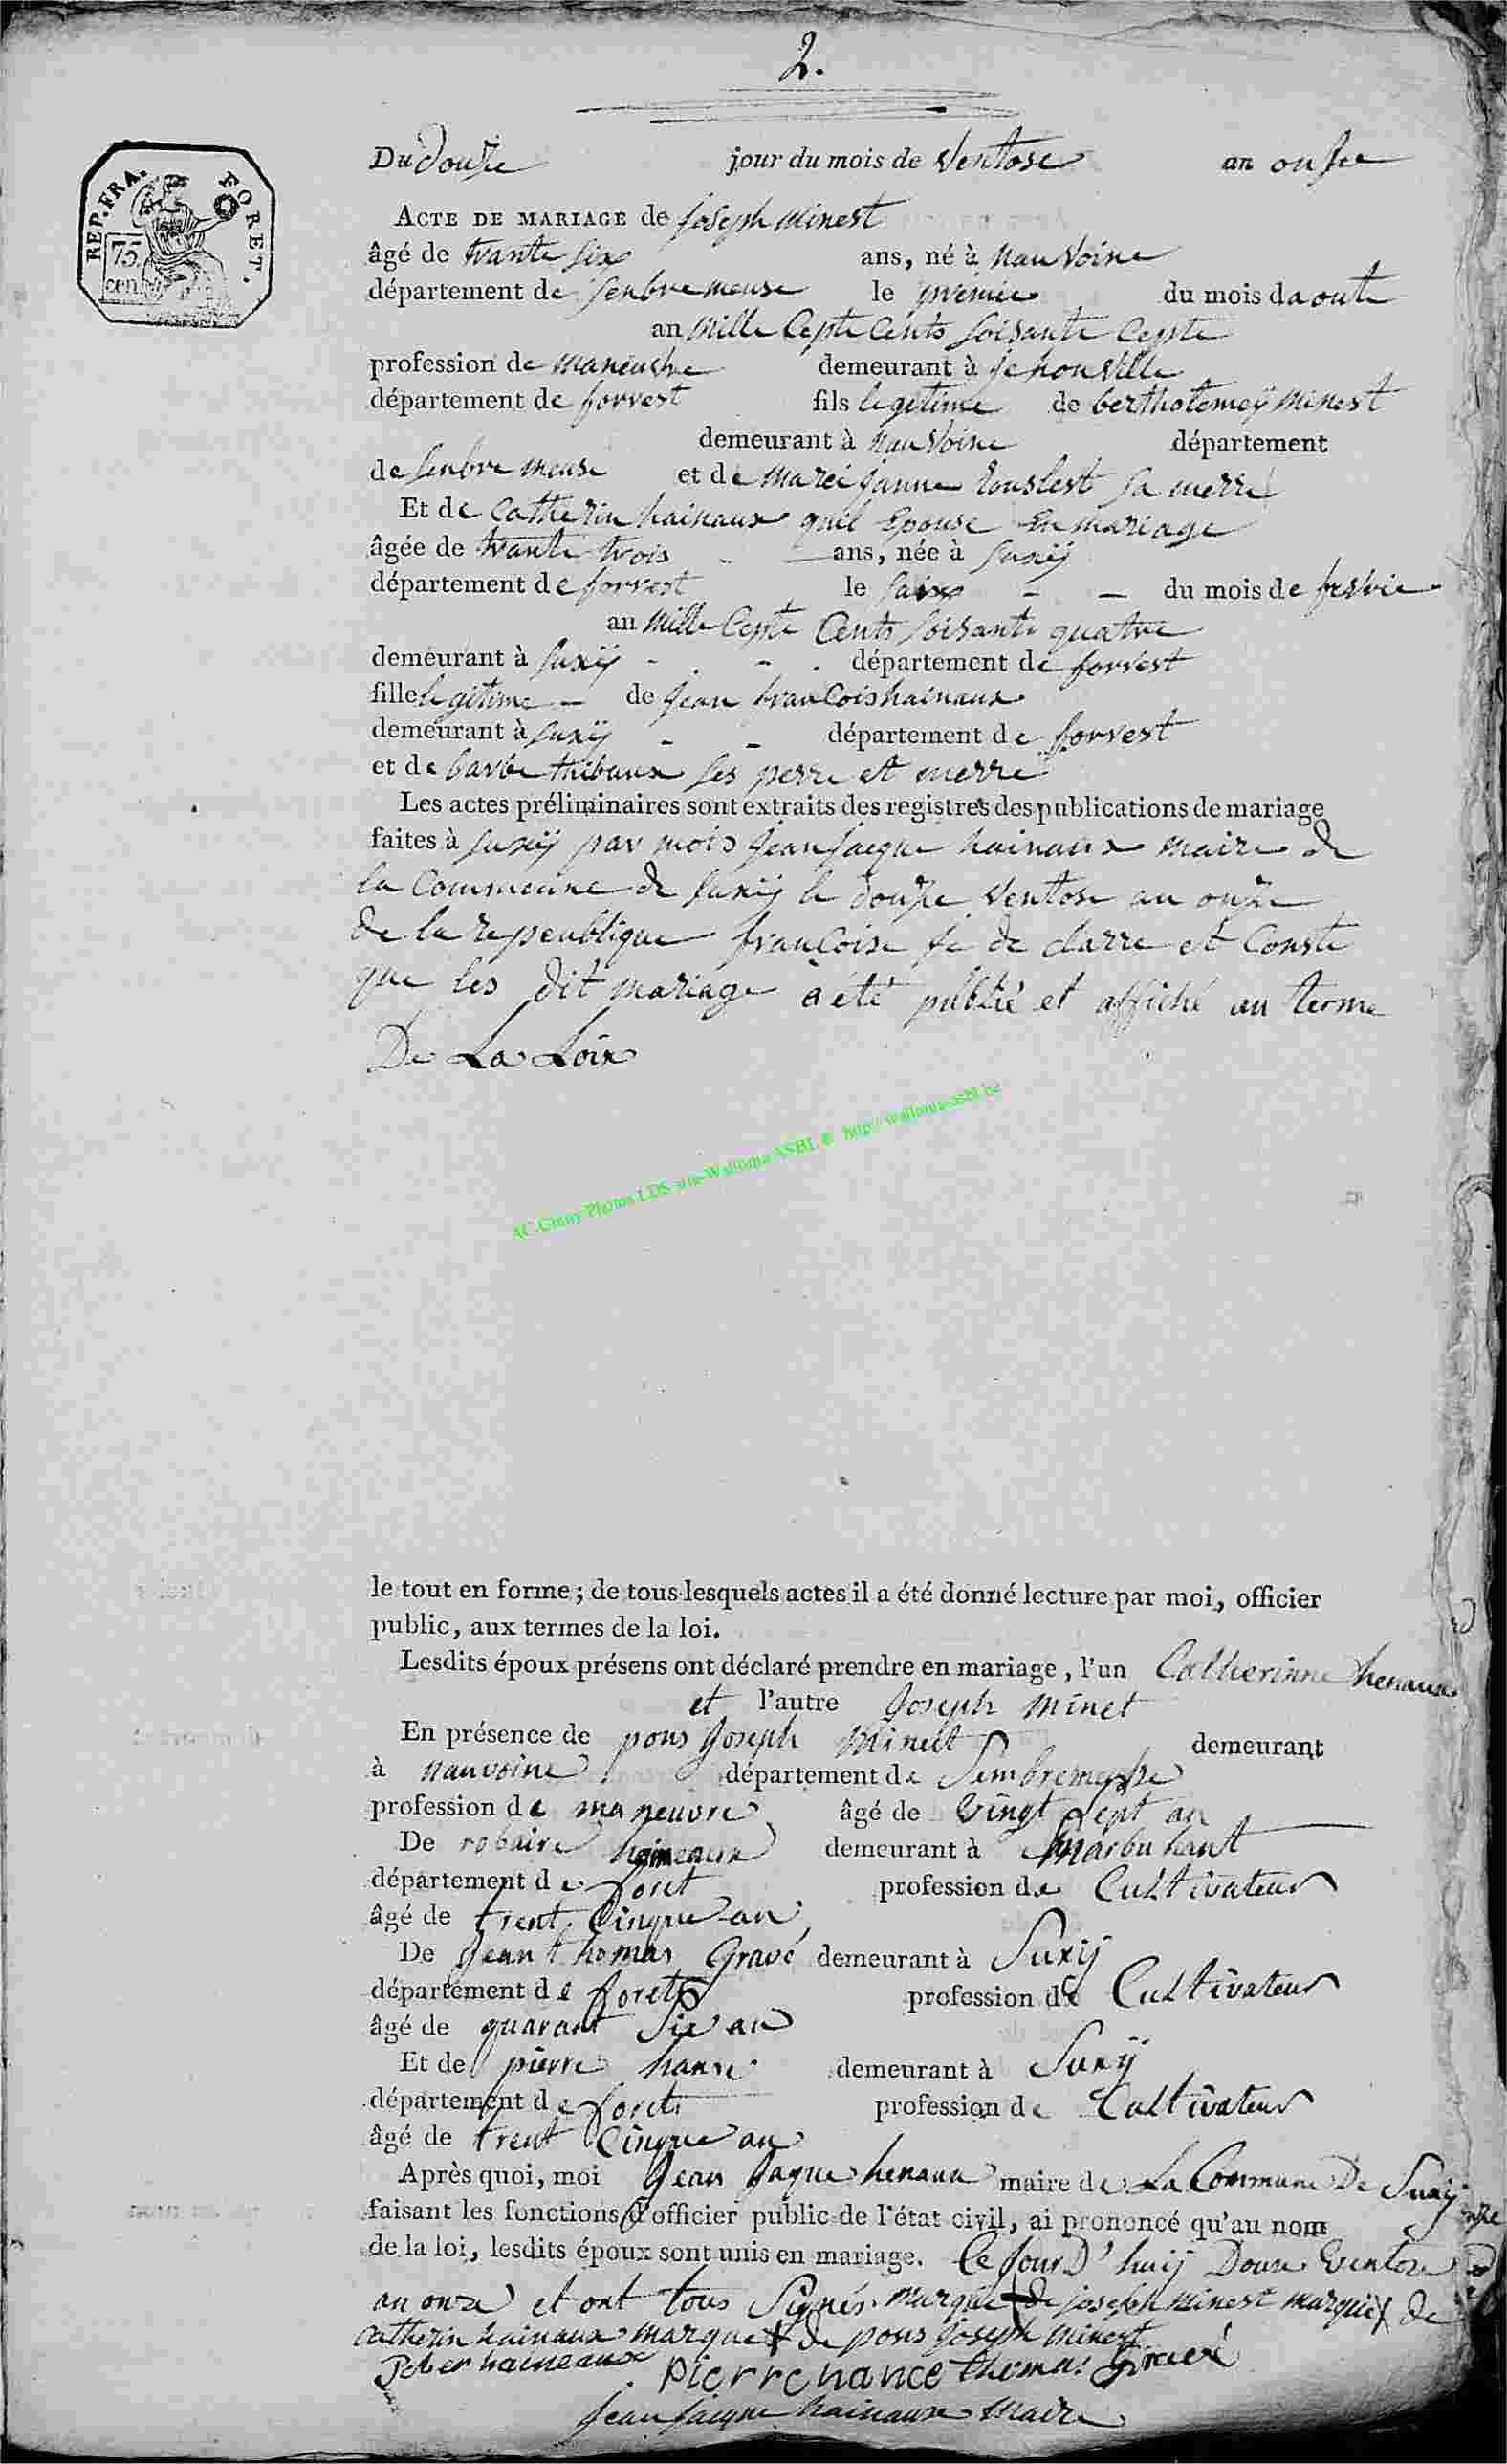 2.
REP. FRA. FORET.
75.
cen.
Du douze jour du mois de Ventose an onsee
ACTE DE MARIAGE de Joseph Minest
âgé de trante six ans, né à Nauvoine
département de senbremeuse le premier du mois daoute
an Mille Cepte Cents soisante Cepte
profession de maneuvre demeurant à jehonville
département de forrest fils legetime de bertholemeÿ Minest
demeurant à Nauvoine département
de senbre meuse et de Marei janne sa merre
Et de Catherin hainaux quil Epouse En mariage
âgée de trante trois - ans, née à suxÿ
département de forrest le - - du mois de
an Mille Cepte Cents soisante quatre
demeurant à suxÿ - - département de forrest
fille legitime - de jean francois hainaux
demeurant à suxÿ - - département de forrest
et de barbe thibaux ses perre et merre
Les actes préliminaires sont extraits des registres des publications de mariage
faites à suxÿ par mois jean jacque hainaux maire de
la Commeune de suxÿ le douze Ventose an onze
de la repeublique francoise je de clarre et Conste
que les dit mariage a été publié et affiché au terme
De La Loix
AC Chiny Photos LDS sur Walloniá ASBL © http://walloniaasbl.be
le tout en forme; de tous lesquels actes il a été donné lecture par moi, officier
public, aux termes de la loi.
Lesdits époux présens ont déclaré prendre en mariage, l'un Catherinne henaux
et l'autre Joseph Minet
En présence de pons Joseph Minet demeurant
à Nauvoine département de Sembremeuse
profession de maneuvre âgé de vingt sept an
De robaire haineaux demeurant à Marbuhant
département de foret profession de Cultivateur
âgé de trent Cinque an
De Jean thomas Gravé demeurant à Suxÿ
département de forets profession de Cultivateur
âgé de quarant Six an
Et de pierre hanse demeurant à Suxÿ
département de forets profession de Cultivateur
âgé de trent Cinque an
Après quoi, moi Jean Jaque henaux maire de La Commune De Suxÿ
faisant les fonctions d'officier public de l'état civil, ai prononcé qu'au nom
de la loi, lesdits époux sont unis en mariage. Ce Jour D'huij Douze Ventose
an onze et ont tous Signés. Marque de joseph Minest marque de
Catherin hainaux marque de pons joseph minest
Rober haineaux Pierre hance thomas Gravé
jean jacque hainaux Maire